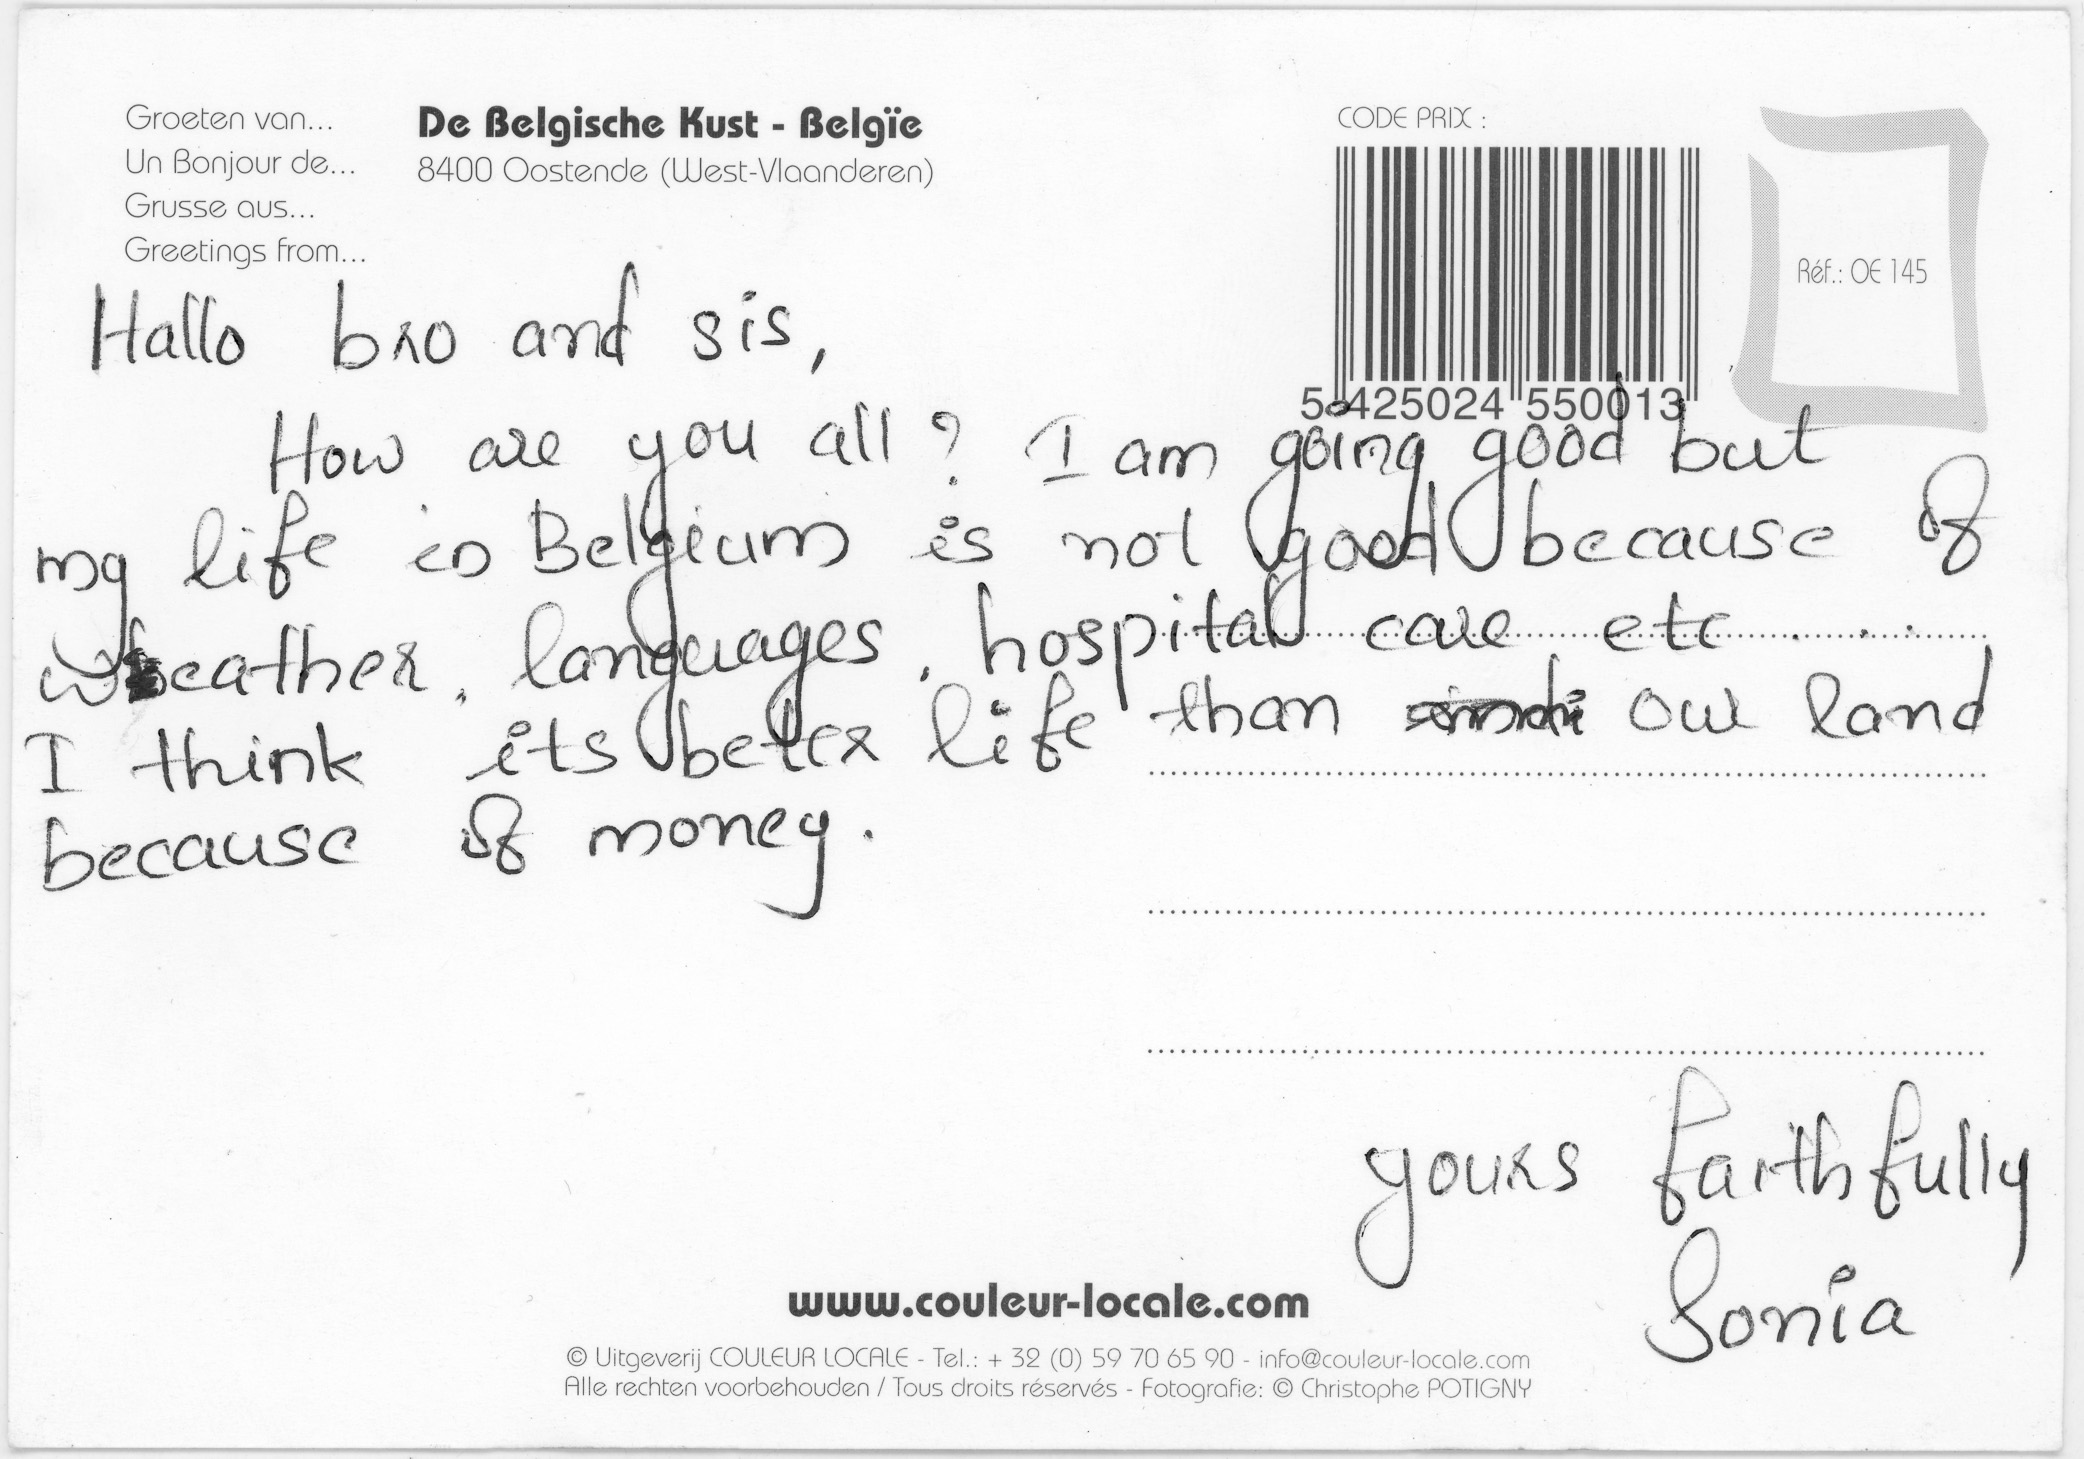 Groeten van...
Un Bonjour de...
Grusse aus...
Greetings from...
De Belgische Kust - Belgïe
8400 Oostende (West-Vlaanderen)
CODE PRIX :
5 425024 550013
Réf.: OE 145
Hallo bro and sis,
How are you all ? I am going good but
my life in Belgium is not good because of
weather, languages, hospital care etc ....
I think its beter life than our land
because of money.
yours faithfully
Sonia
www.couleur-locale.com
© Uitgeverij COULEUR LOCALE - Tel.: + 32 (0) 59 70 65 90 - info@couleur-locale.com
Alle rechten voorbehouden / Tous droits réservés - Fotografie: © Christophe POTIGNY